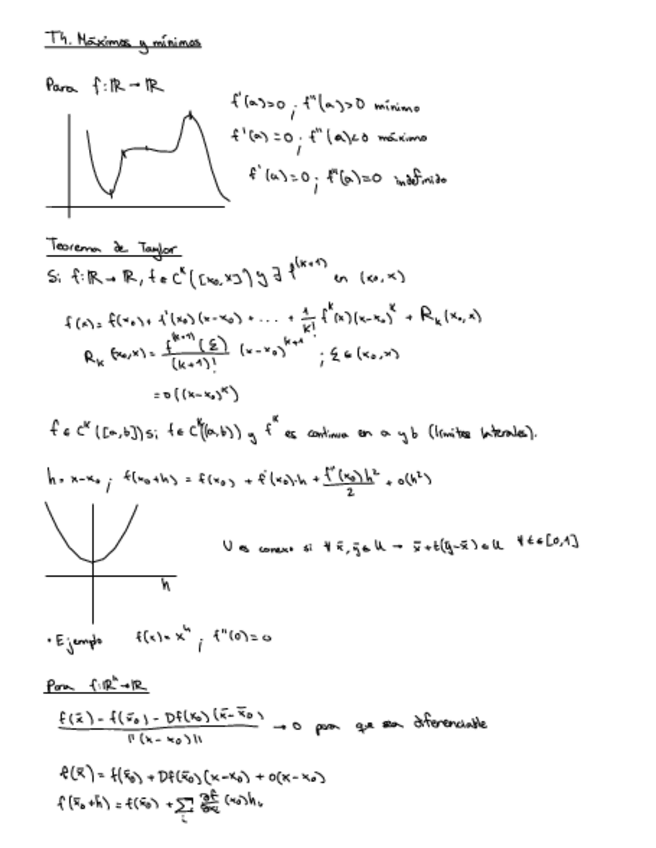 T4. Máximos y mínimos
Para f: ℝ → ℝ
f'(a)=0 ; f''(a)>0 mínimo
f'(a)=0 ; f''(a)<0 máximo
f'(a)=0 ; f''(a)=0 indefinido
Teorema de Taylor
Si f: ℝ → ℝ, f ∈ C^k([x₀,x]) y ∃ f^(k+1) en (x₀,x)
f(x) = f(x₀) + f'(x₀)(x-x₀) + ... + 1/k! f^k(x)(x-x₀)^k + R_k(x₀,x)
R_k(x₀,x) = f^(k+1)(ξ)/(k+1)! (x-x₀)^(k+1) ; ξ ∈ (x₀,x)
= o((x-x₀)^k)
f ∈ C^k([a,b]) si f ∈ C^k((a,b)) y f^k es continua en a y b (límites laterales).
h = x-x₀ ; f(x₀+h) = f(x₀) + f'(x₀)·h + f''(x₀)h²/2 + o(h²)
U es conexo si ∀ x̄, ȳ ∈ U → x̄+t(ȳ-x̄) ∈ U ∀ t ∈ [0,1]
h
• Ejemplo f(x) = x⁴ ; f''(0)=0
Para f: ℝⁿ → ℝ
f(x̄) - f(x̄₀) - Df(x₀)(x̄-x̄₀) / ||(x-x₀)|| → 0 para que sea diferenciable
f(x̄) = f(x̄₀) + Df(x̄₀)(x-x₀) + o(x-x₀)
f(x̄₀+h) = f(x̄₀) + Σ_i ∂f/∂x_i (x₀)h_i